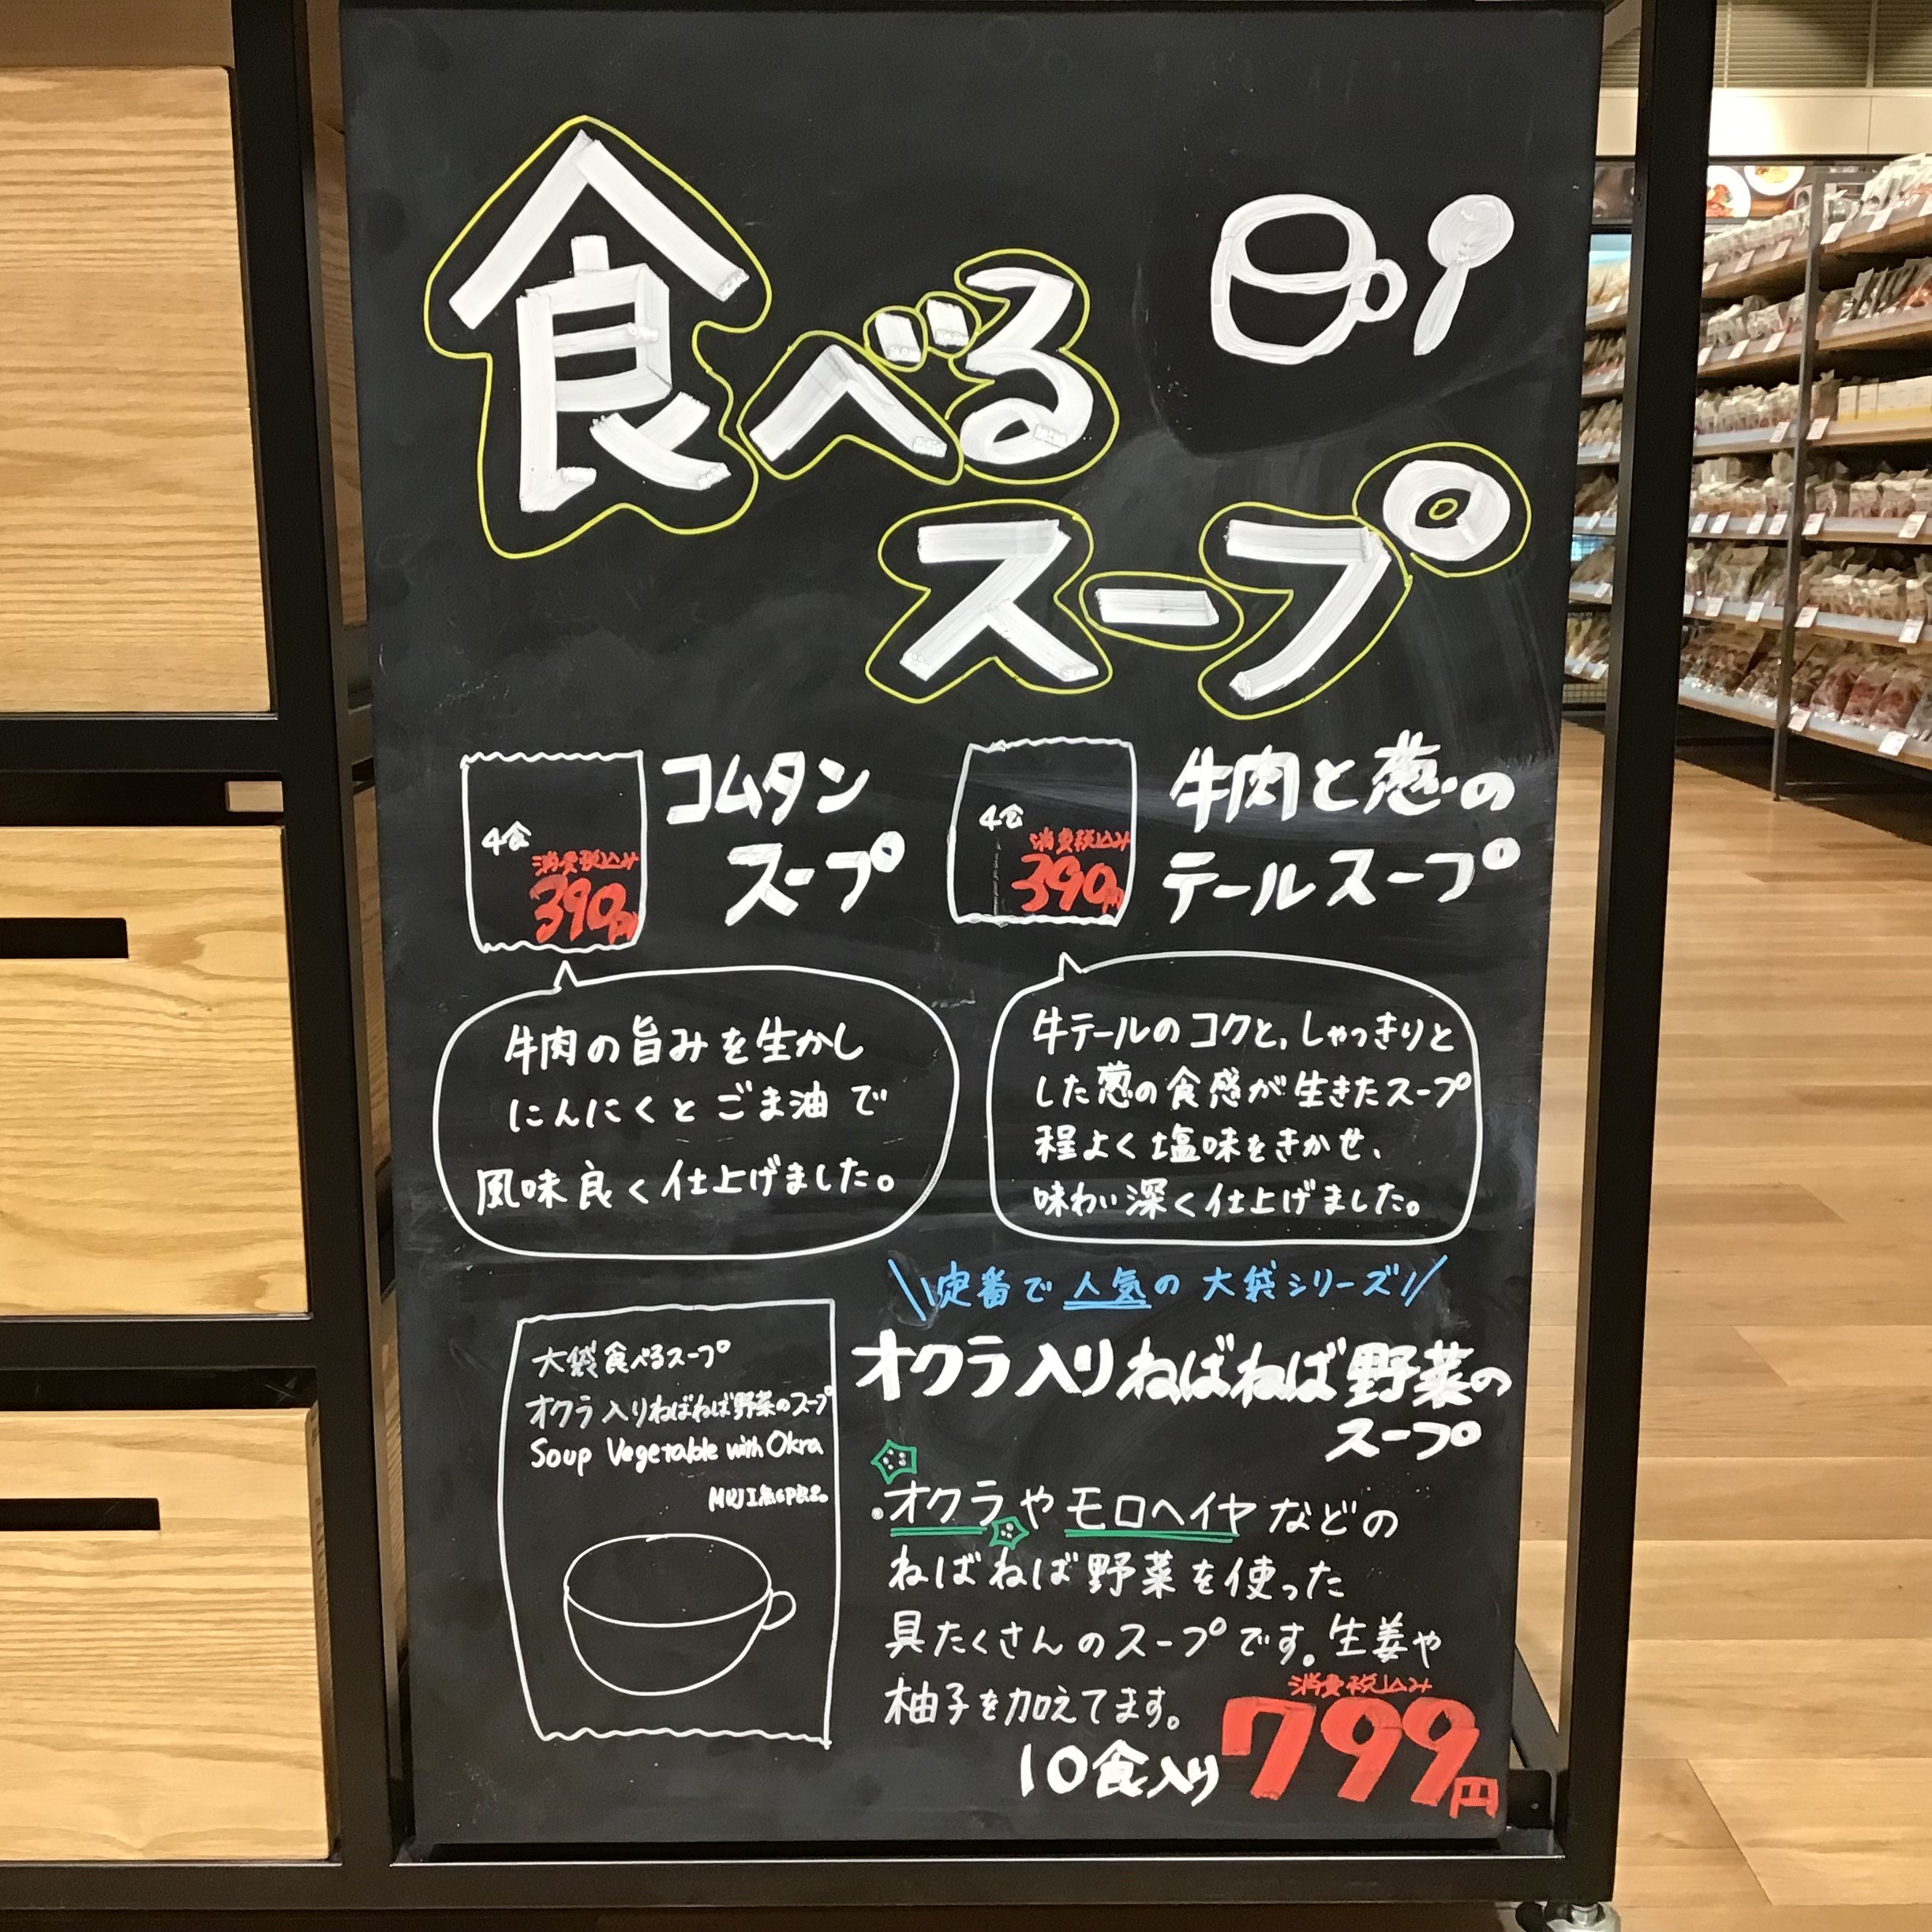 食べる
スープ
4食
消費税込み
390円
コムタン
スープ
4食
消費税込み
390円
牛肉と葱の
テールスープ
牛肉の旨みを生かし
にんにくとごま油で
風味良く仕上げました。
牛テールのコクと,しゃっきりと
した葱の食感が生きたスープ
程よく塩味をきかせ、
味わい深く仕上げました。
\\定番で人気の大袋シリーズ!//
大袋食べるスープ
オクラ入りねばねば野菜のスープ
Soup Vegetable with Okra
MUJI無印良品
オクラ入りねばねば野菜の
スープ
・オクラやモロヘイヤなどの
ねばねば野菜を使った
具たくさんのスープです。生姜や
柚子を加えてます。
消費税込み
10食入り 799円